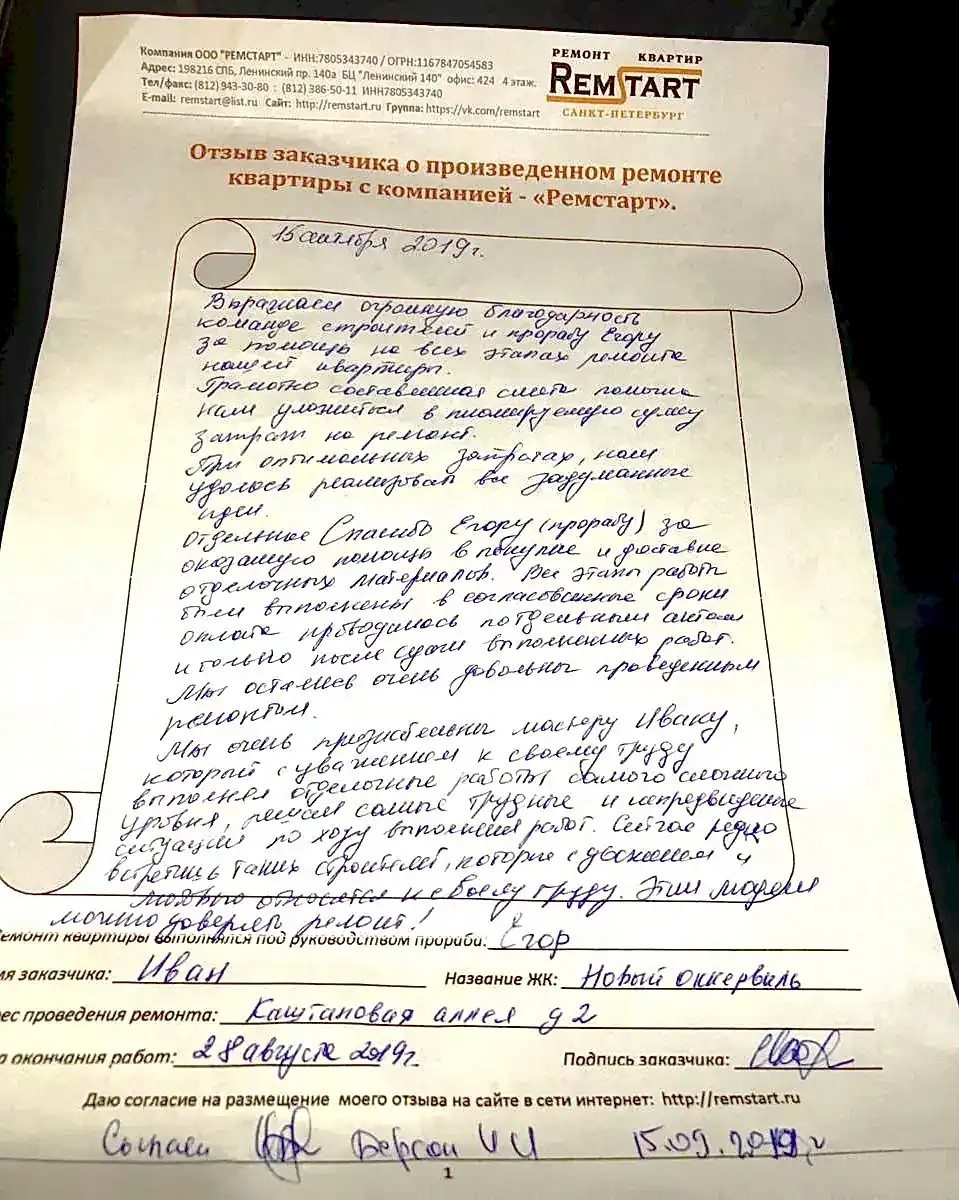 Компания ООО "РЕМСТАРТ" - ИНН:7805343740 / ОГРН:1167847054583
Адрес: 198216 СПБ, Ленинский пр. 140а БЦ "Ленинский 140" офис: 424 4 этаж.
Тел/факс: (812) 943-30-80 ; (812) 386-50-11 ИНН7805343740
E-mail: remstart@list.ru Сайт: http://remstart.ru Группа: https://vk.com/remstart
РЕМОНТ КВАРТИР
REMSTART
САНКТ-ПЕТЕРБУРГ
Отзыв заказчика о произведенном ремонте
квартиры с компанией - «Ремстарт».
15 сентября 2019г.
Выражаем огромную благодарность
команде строителей и прорабу Егору
за помощь на всех этапах ремонта
нашей квартиры.
Грамотно составленная смета помогла
нам уложиться в планируемую сумму
затрат на ремонт.
При оптимальных затратах, нам
удалось реализовать все задуманные
идеи.
Отдельное Спасибо Егору (прорабу) за
оказанную помощь в покупке и доставке
отделочных материалов. Все этапы работы
были выполнены в согласованные сроки
оплата проводилась по отдельным актам
и только после сдачи выполненных работ.
Мы остались очень довольны проведенным
ремонтом.
Мы очень признательны мастеру Ивану,
который с уважением к своему труду
выполнял отделочные работы самого сложного
уровня, решал самые трудные и непредвиденные
ситуации по ходу выполнения работ. Сейчас редко
встретишь таких строителей, которые с уважением и
любовью относятся к своему труду. Этим людям
можно доверять ремонт!
емонт квартиры выполнялся под руководством прораба: Егор
мя заказчика: Иван
Название ЖК: Новый Оккервиль
ес проведения ремонта: Каштановая аллея д 2
а окончания работ: 28 августа 2019г.
Подпись заказчика:
Даю согласие на размещение моего отзыва на сайте в сети интернет: http://remstart.ru
Согласен И И 15.09.2019 г
1